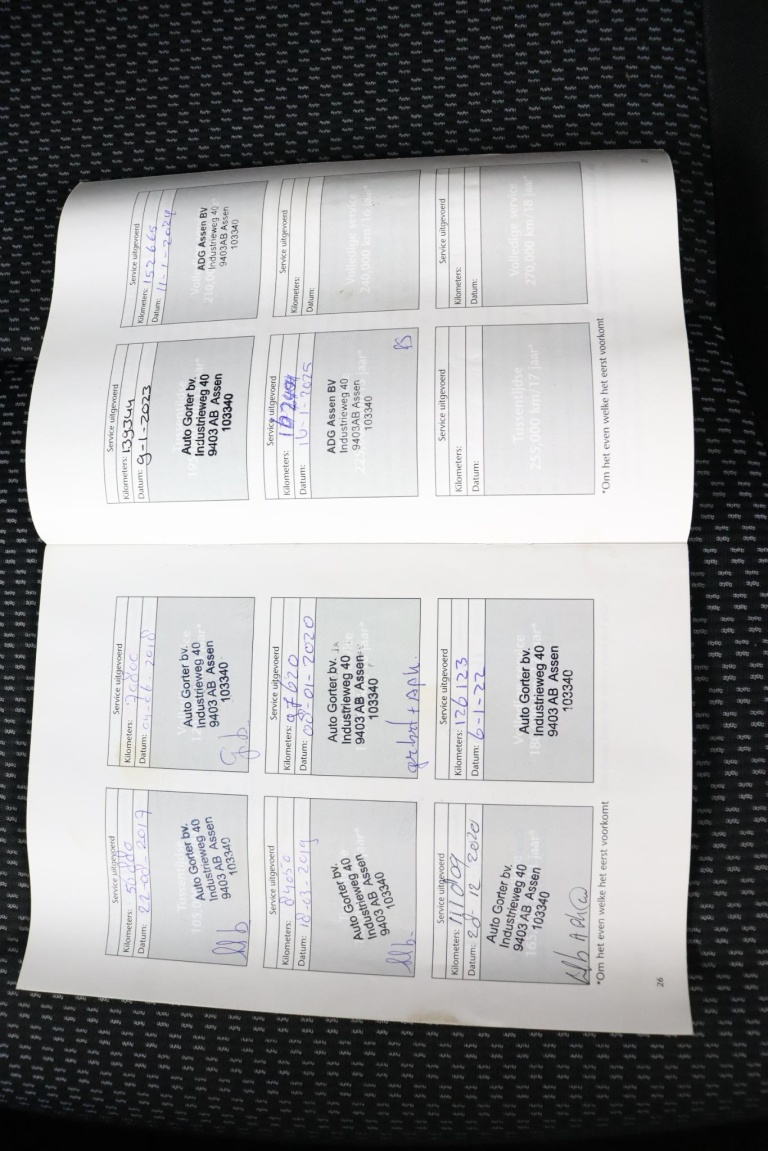 Service uitgevoerd
Kilometers:
Datum: 22-0 -2017
Auto Gorter bv.
Industrieweg 40
9403 AB Assen
103340
Service uitgevoerd
Kilometers:
Datum: 04-06-2018
Auto Gorter bv.
Industrieweg 40
9403 AB Assen
103340
Service uitgevoerd
Kilometers: 84050
Datum: 18-03-2019
Auto Gorter bv.
Industrieweg 40
9403 AB Assen
103340
Service uitgevoerd
Kilometers: 97620
Datum: 08-01-2020
Auto Gorter bv.
Industrieweg 40
9403 AB Assen
103340
Service uitgevoerd
Kilometers: 111009
Datum: 28 12 2020
Auto Gorter bv.
Industrieweg 40
9403 AB Assen
103340
Service uitgevoerd
Kilometers: 126123
Datum: 6-1-22
Auto Gorter bv.
Industrieweg 40
9403 AB Assen
103340
*Om het even welke het eerst voorkomt
26
Service uitgevoerd
Kilometers: 139344
Datum: 9-1-2023
Auto Gorter bv.
Industrieweg 40
9403 AB Assen
103340
Service uitgevoerd
Kilometers: 152665
Datum: 11-1-2024
ADG Assen BV
Industrieweg 40
9403AB Assen
103340
Service uitgevoerd
Kilometers:
Datum: 16-1-2025
ADG Assen BV
Industrieweg 40
9403AB Assen
103340
Service uitgevoerd
Kilometers:
Datum:
Volledige service
240.000 km/16 jaar*
Service uitgevoerd
Kilometers:
Datum:
Tussentijdse
255.000 km/17 jaar*
Service uitgevoerd
Kilometers:
Datum:
Volledige service
270.000 km/18 jaar*
*Om het even welke het eerst voorkomt